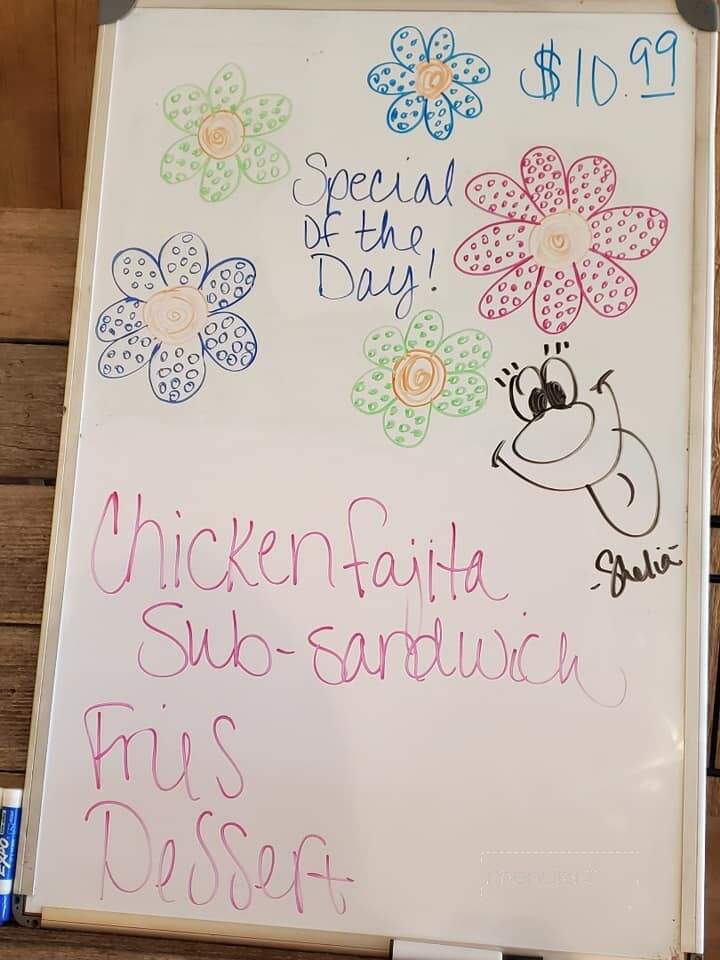 $10.99
Special
Of the
Day!
-Shelia-
Chicken fajita
Sub-sandwich
Fries
Dessert
EXPO